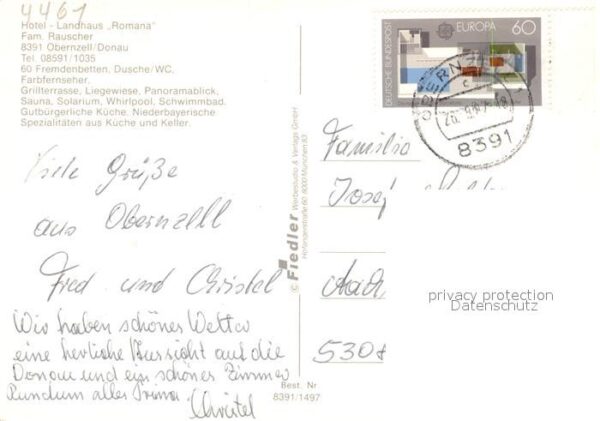 4461
Hotel - Landhaus „Romana"
Fam. Rauscher
8391 Obernzell/Donau
Tel. 08591/1035
60 Fremdenbetten, Dusche/WC,
Farbfernseher.
Grillterrasse, Liegewiese, Panoramablick,
Sauna, Solarium, Whirlpool, Schwimmbad.
Gutbürgerliche Küche. Niederbayerische
Spezialitäten aus Küche und Keller.
Viele Grüße
aus Obernzell
Fred und Christel
Wir haben schönes Wetter
eine herrliche Aussicht auf die
Donau und ein schönes Zimmer
Rundum alles Prima.
Christel
Best. Nr
8391/1497
© Fiedler Werbestudio & Verlags GmbH
8000 München 83
DEUTSCHE BUNDESPOST
EUROPA 60
OBERNZELL
8391
Familie
Josef
5308
privacy protection
Datenschutz